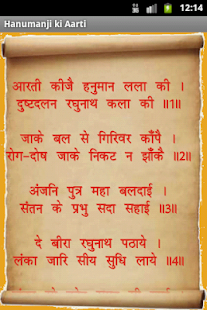 12:14
Hanumanji ki Aarti
आरती कीजै हनुमान लला की ।
दुष्टदलन रघुनाथ कला की ॥1॥
जाके बल से गिरिवर काँपै ।
रोग-दोष जाके निकट न झाँकै ॥2॥
अंजनि पुत्र महा बलदाई ।
संतन के प्रभु सदा सहाई ॥3॥
दे बीरा रघुनाथ पठाये ।
लंका जारि सीय सुधि लाये ॥4॥